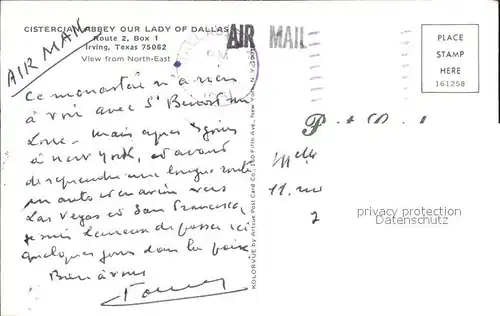 CISTERCIAN ABBEY OUR LADY OF DALLAS
Route 2, Box 1
Irving, Texas 75062
View from North-East
AIR MAIL
AIR MAIL
PM
PLACE
STAMP
HERE
161258
Ce monastère n'a rien
à voir avec St Benoit sur
Loire. Mais après 3 jours
à New York, et avant
de reprendre une longue route
en auto et en avion vers
Las Vegas et San Francisco,
je suis heureux de passer ici
quelques jours dans la paix.
Bien à vous
KOLORVUE by Artvue Post Card Co., 160 Fifth Ave., New York, N.Y.
Post Card
Melle
11, rue
privacy protection
Datenschutz